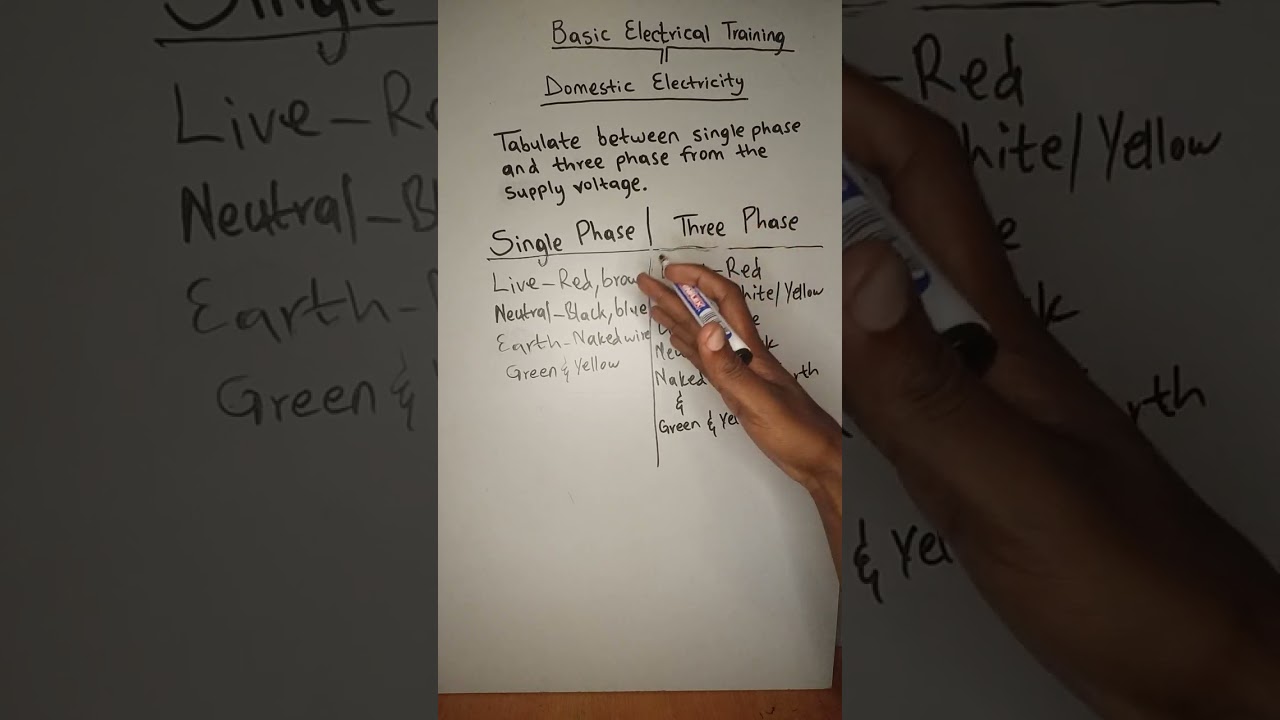 Basic Electrical Training
Domestic Electricity
Tabulate between single phase
and three phase from the
supply voltage.
Single Phase | Three Phase
Live-Red, brow
-Red
Neutral-Black, blue
hite/Yellow
Earth-Naked wire
Green & Yellow
Naked
rth
&
Green & Ye